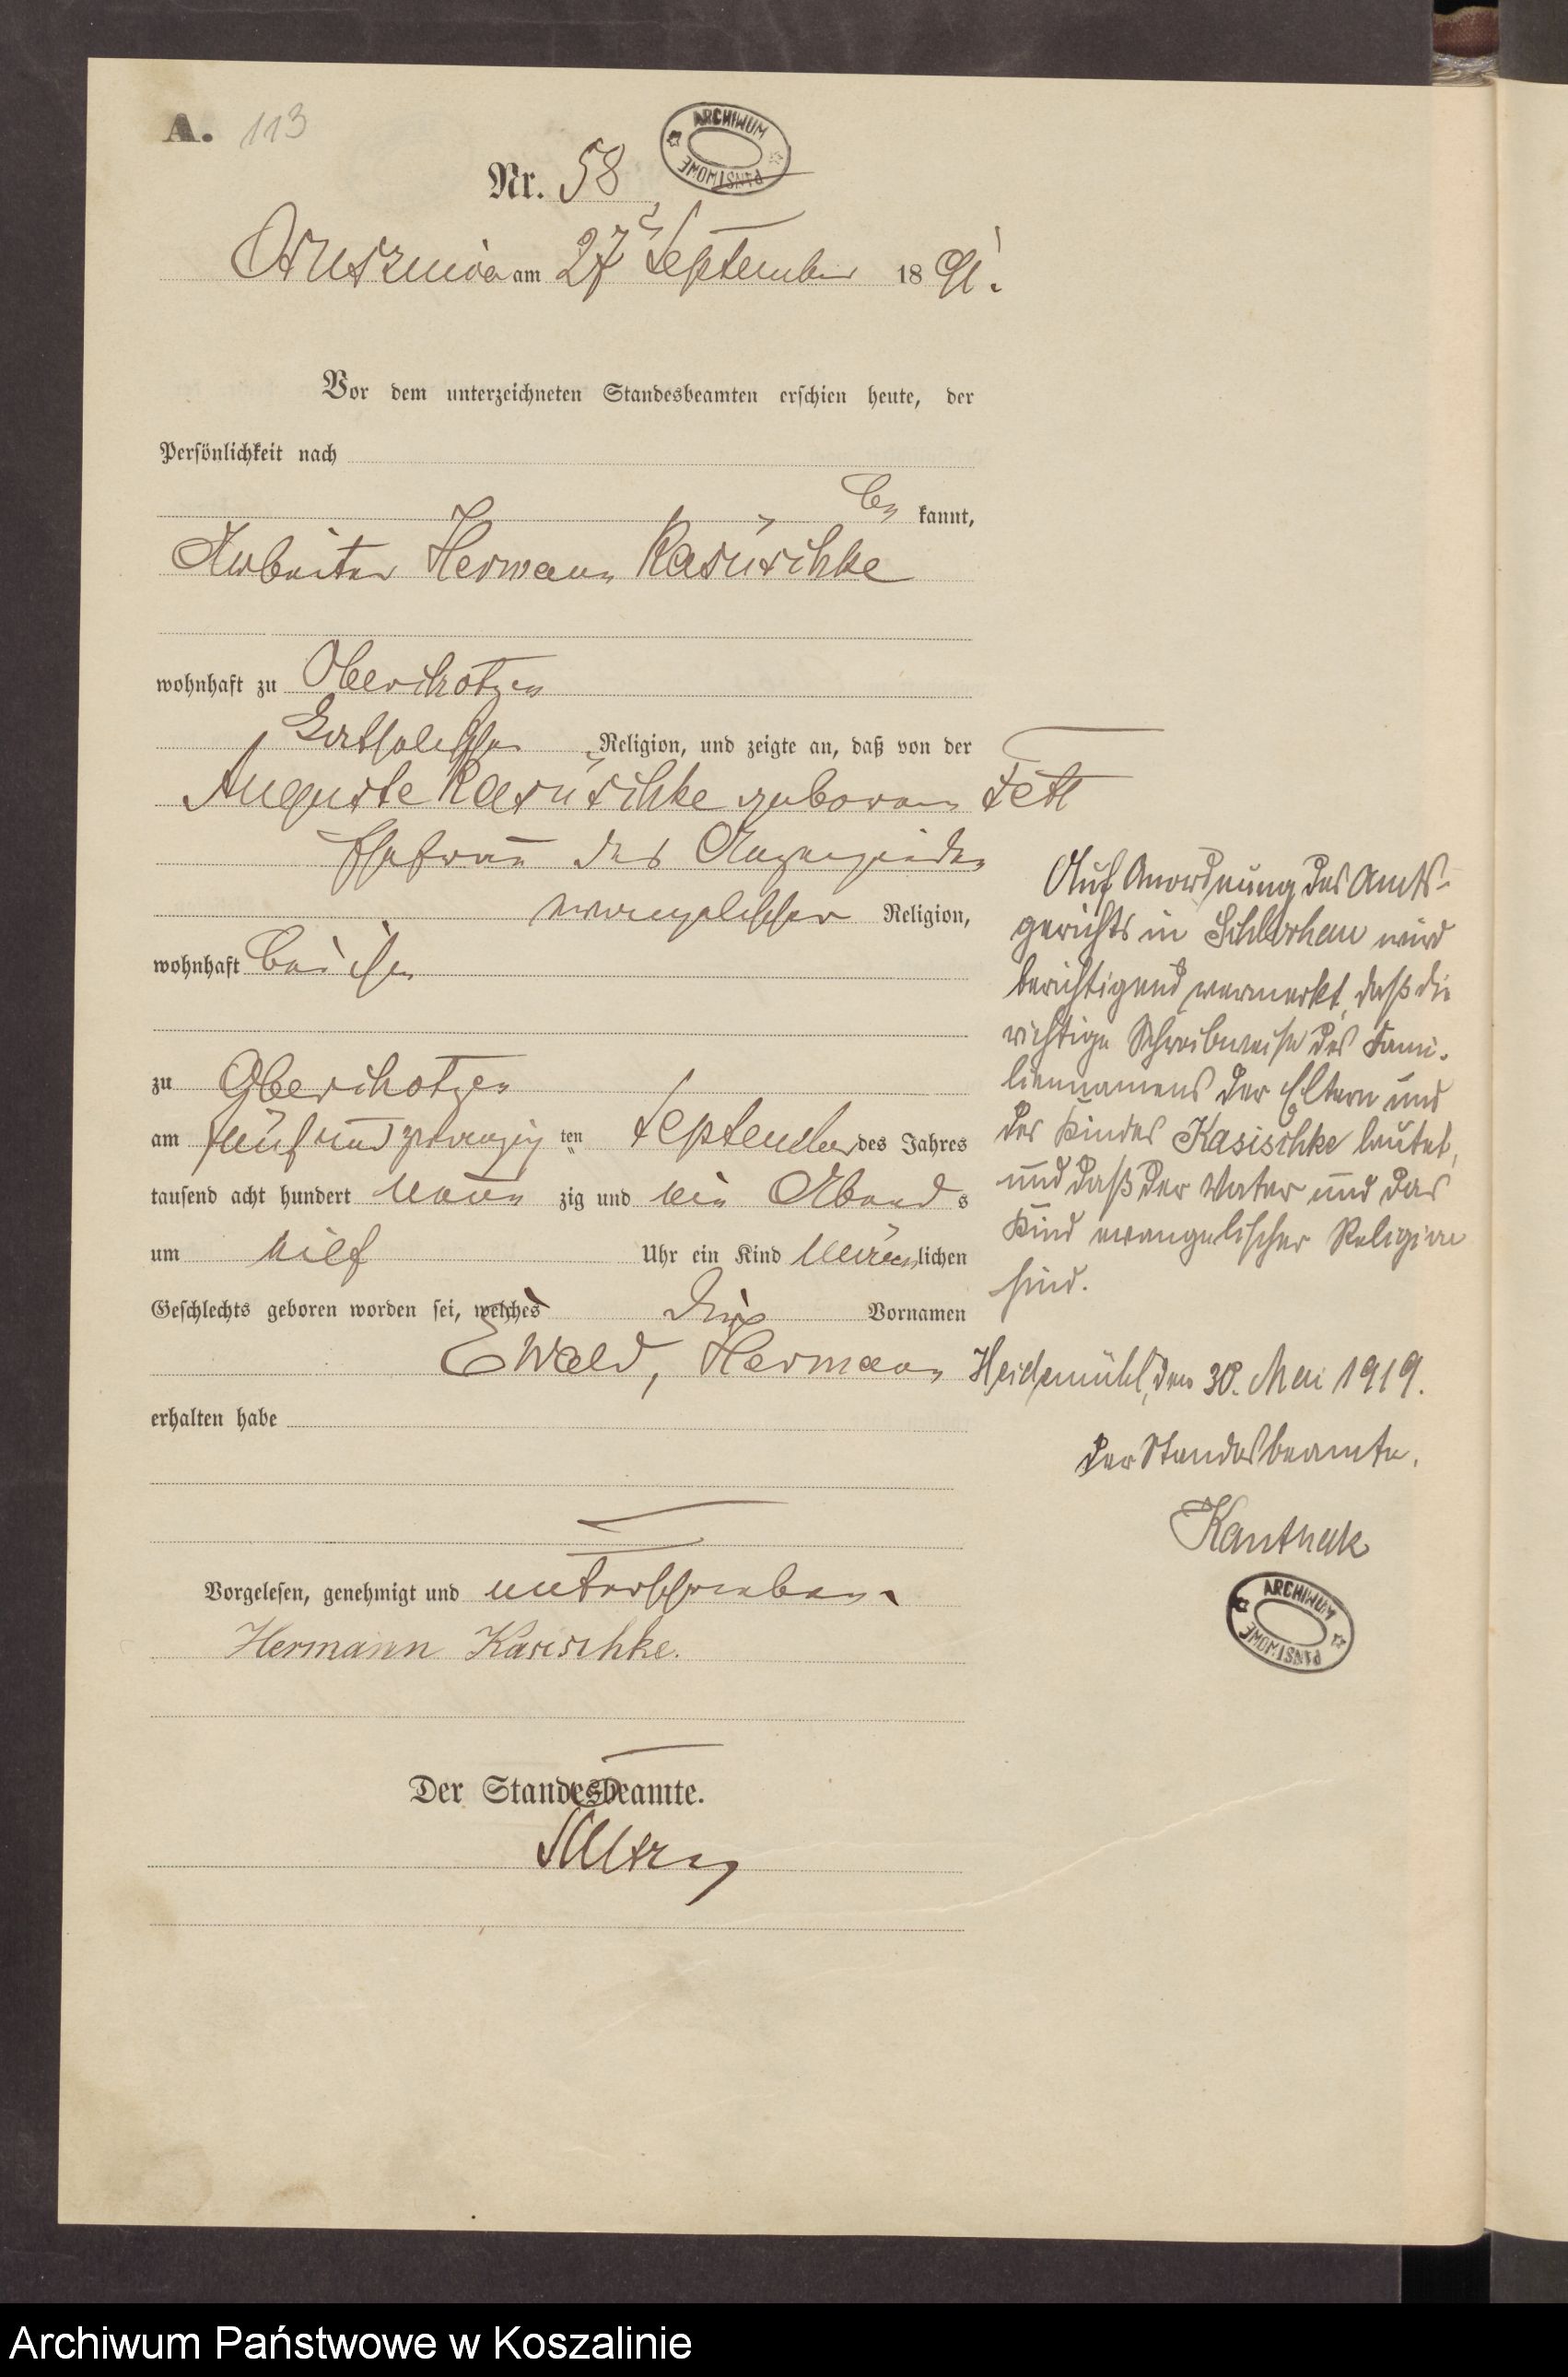 A. 113
ARCHIWUM PAŃSTWOWE
Nr. 58
am 27 September 1891.
Vor dem unterzeichneten Standesbeamten erschien heute, der
Persönlichkeit nach
be kannt,
Arbeiter Hermann Kasüschke
wohnhaft zu Oberschotzen
katholischer Religion, und zeigte an, daß von der
Auguste Kasüschke geborene
Ehefrau des Anzeigenden
evangelischer Religion,
wohnhaft bei ihm
zu Oberschotzen
am fünf und zwanzig ten September des Jahres
tausend acht hundert neun zig und ein Abend s
um elf Uhr ein Kind männlichen
Geschlechts geboren worden sei, welches die Vornamen
Ewald, Hermann
erhalten habe
Vorgelesen, genehmigt und unterschrieben.
Hermann Kasischke.
Der Standesbeamte.
Auf Anordnung des Amts-
gerichts in Schlochau wird
berichtigend vermerkt, daß die
richtige Schreibweise des Fami-
liennamens der Eltern und
des Kindes Kasischke lautet,
und daß der Vater und das
Kind evangelischer Religion
sind.
Heidemühl, den 30. Mai 1919.
Der Standesbeamte.
Kanthak
ARCHIWUM PAŃSTWOWE
Archiwum Państwowe w Koszalinie